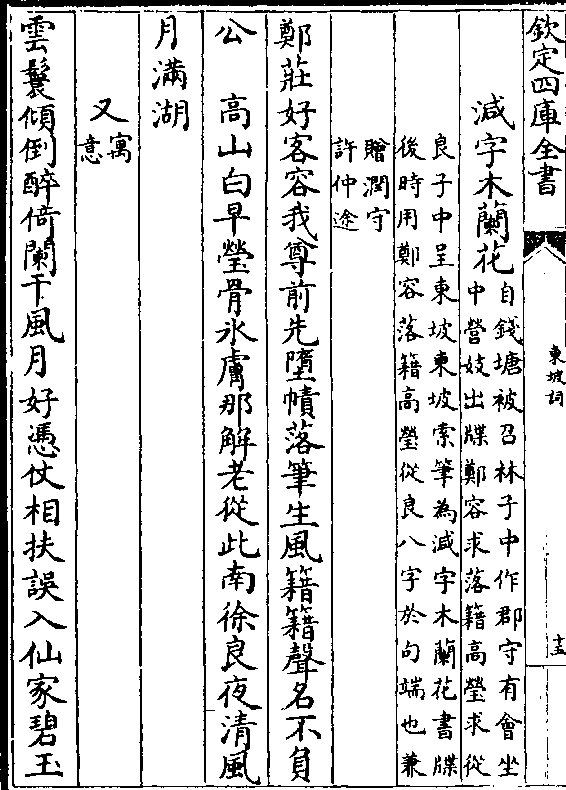 欽定四庫全書
東坡詞
十五
減字木蘭花
自錢塘被召林子中作郡守有會坐
中營妓出牒鄭容求落籍高瑩求從
良子中呈東坡東坡索筆為減字木蘭花書牒
後時用鄭容落籍高瑩從良八字於句端也兼
贈潤守
許仲途
鄭莊好客容我尊前先墮幘落筆生風籍籍聲名不負
公　高山白早瑩骨氷膚那解老從此南徐良夜清風
月滿湖
又
寓
意
雲鬟傾倒醉倚闌干風月好憑仗相扶誤入仙家碧玉